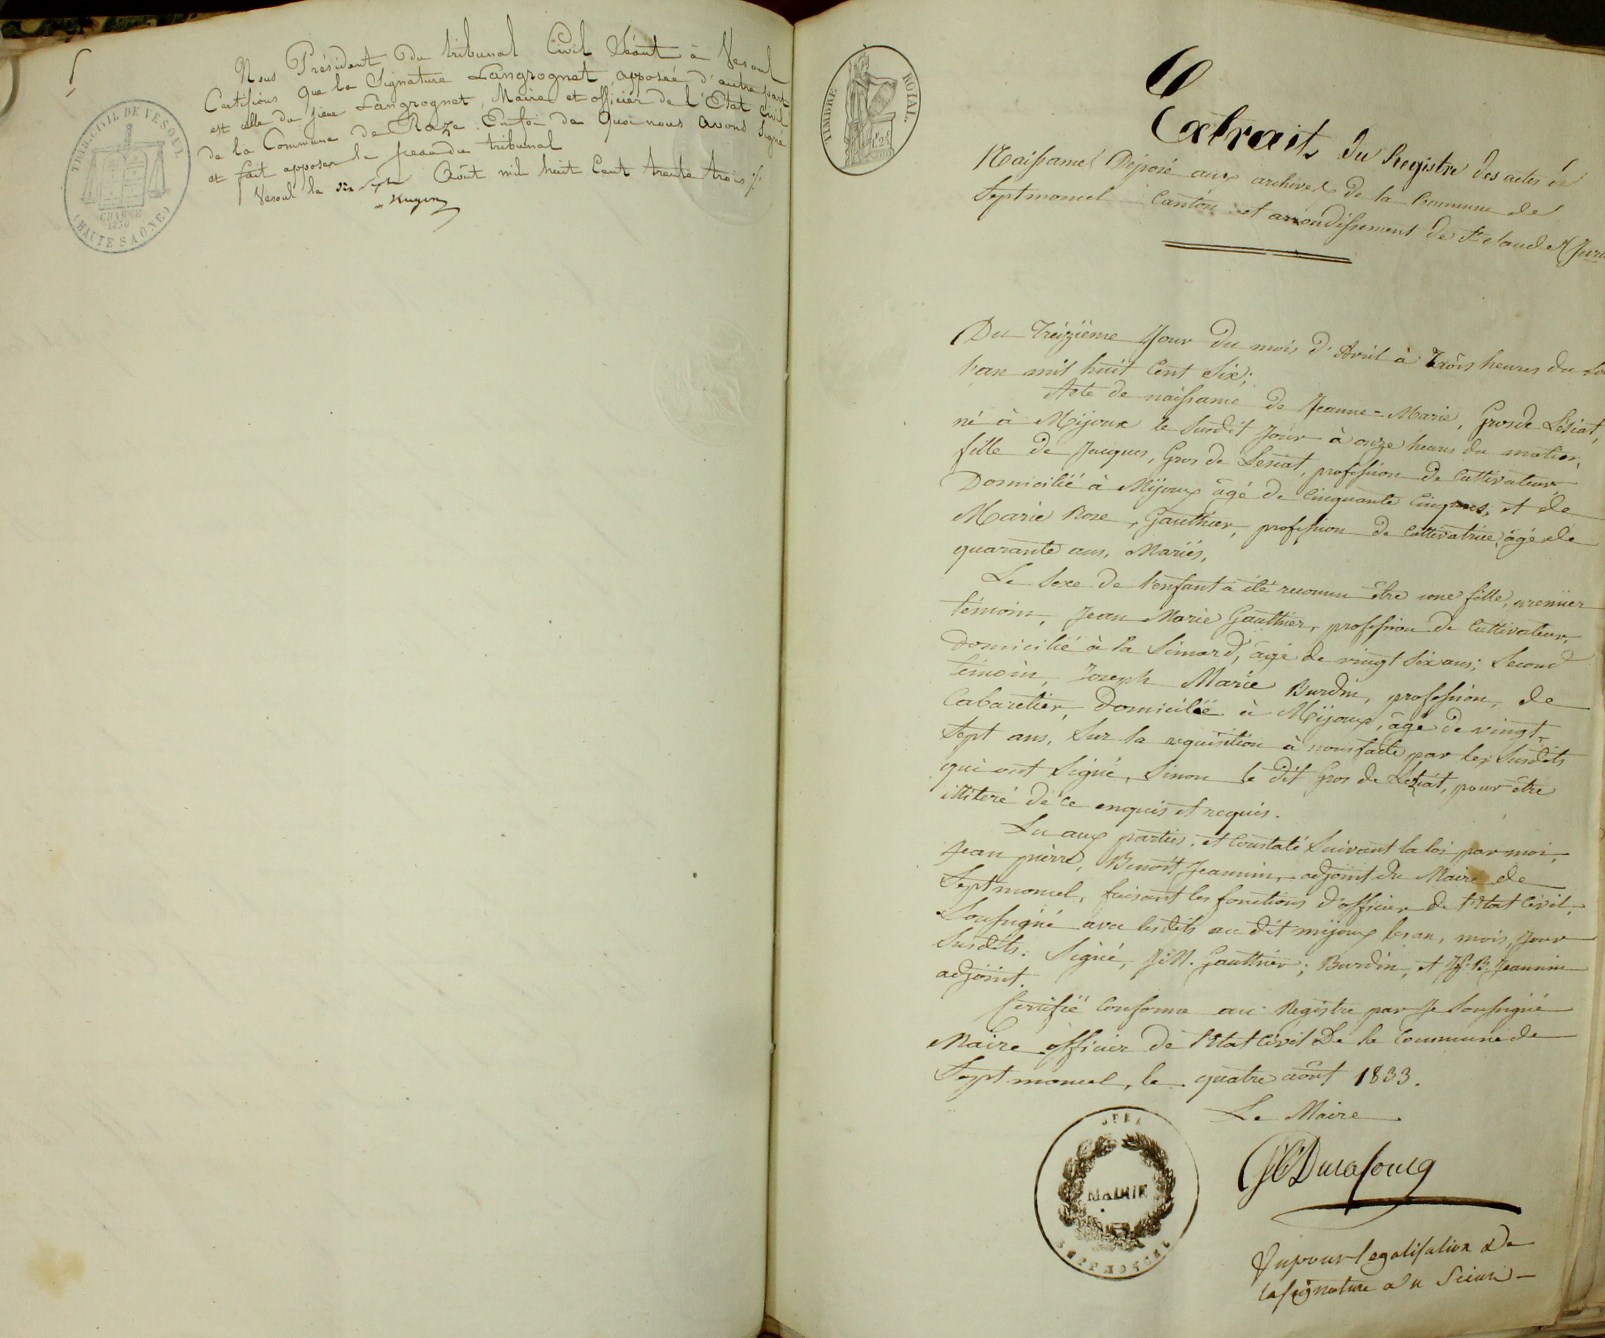 Nous Président du tribunal Civil Séant à Vesoul
Certifions que la Signature Langrognet apposée d'autre part
est celle du Sieur Langrognet, Maire et officier de l'Etat Civil
de la Commune de Raze. En foi de quoi nous avons Signé
et fait apposer le sceau du tribunal
Vesoul le dix sept Août mil huit Cent trente trois
TRIB. CIVIL DE VESOUL
CHARTE
1830
(HAUTE SAÔNE)
TIMBRE ROYAL
Extrait du Registre des actes de
Naissances Déposé aux archives de la Commune de
Septmoncel Canton et arrondissement de St Claude (Jura
Du Treizième Jour du mois d'Avril à Trois heures du soir
l'an mil huit Cent Six;
Acte de naissance de Jeanne=Marie, Gros de Lesiat,
né à Mijoux le Susdit Jour à onze heures du matin,
fille de Jacques, Gros de Lesiat, profession de Cultivateur
Domicilié à Mijoux âgé de Cinquante Cinq ans, et de
Marie Rose, Gauthier, profession de Cultivatrice âgé de
quarante ans, Mariés,
Le Sexe de l'enfant à été reconnu être une fille, premier
témoin, Jean Marie Gauthier, profession de Cultivateur,
Domicilié à la Simard, âgé de vingt Six ans; Second
témoin, Joseph Marie Burdin, profession, de
Cabaretier, Domicilié à Mijoux, âgé de vingt
Sept ans, Sur la requisition à nous faite par les Susdits
qui ont Signé, Sinon le dit Gros de Lesiat, pour être
illiteré de ce enquis et requis.
Lu aux parties, et Constaté Suivant la loi par moi,
Jean pierre, Benoit Jeannin, adjoint du Maire de
Septmoncel, faisant les fonctions d'officier de l'Etat Civil,
Soussigné avec lesdits au dit mijoux les an, mois, Jour
Susdits. Signé, J. M. Gauthier; Burdin, et J. P. B. Jeannin
adjoint.
Certifié Conforme au Registre par Je Soussigné
Maire officier de l'Etat Civil De la Commune de
Septmoncel, le quatre août 1833.
Le Maire
JURA
MAIRIE
SEPTMONCEL
Vu pour légalisation de
la signature du Sieur